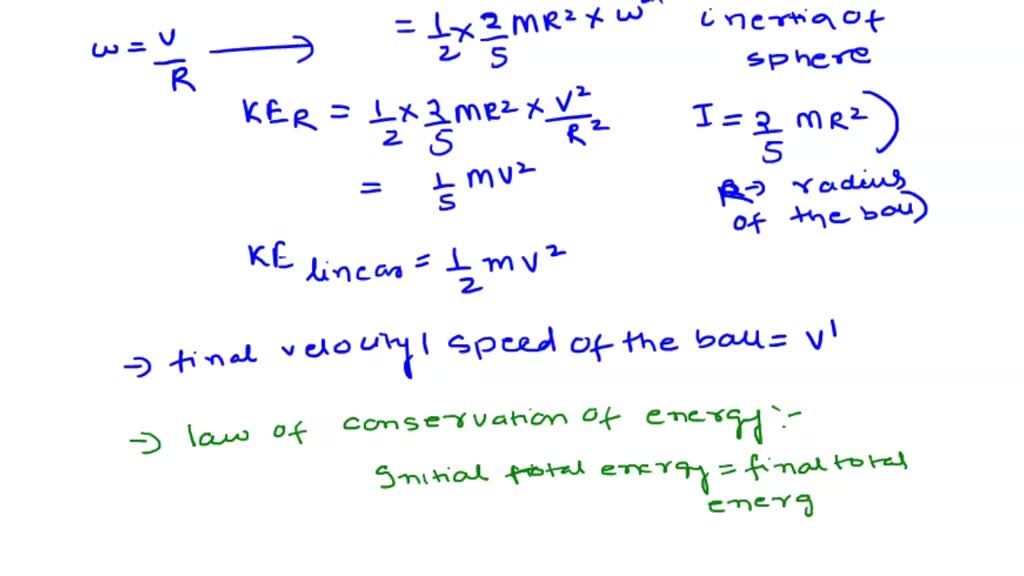 = 1/2 × 2/5 MR² × ω²
inertia of
sphere
ω = v/R →
KE_R = 1/2 × 2/5 MR² × V²/R²
I = 2/5 MR² )
= 1/5 MV²
R → radius
of the ball)
KE linear = 1/2 mv²
→ final velocity | speed of the ball = v'
→ law of conservation of energy :-
Initial total energy = final total
energ